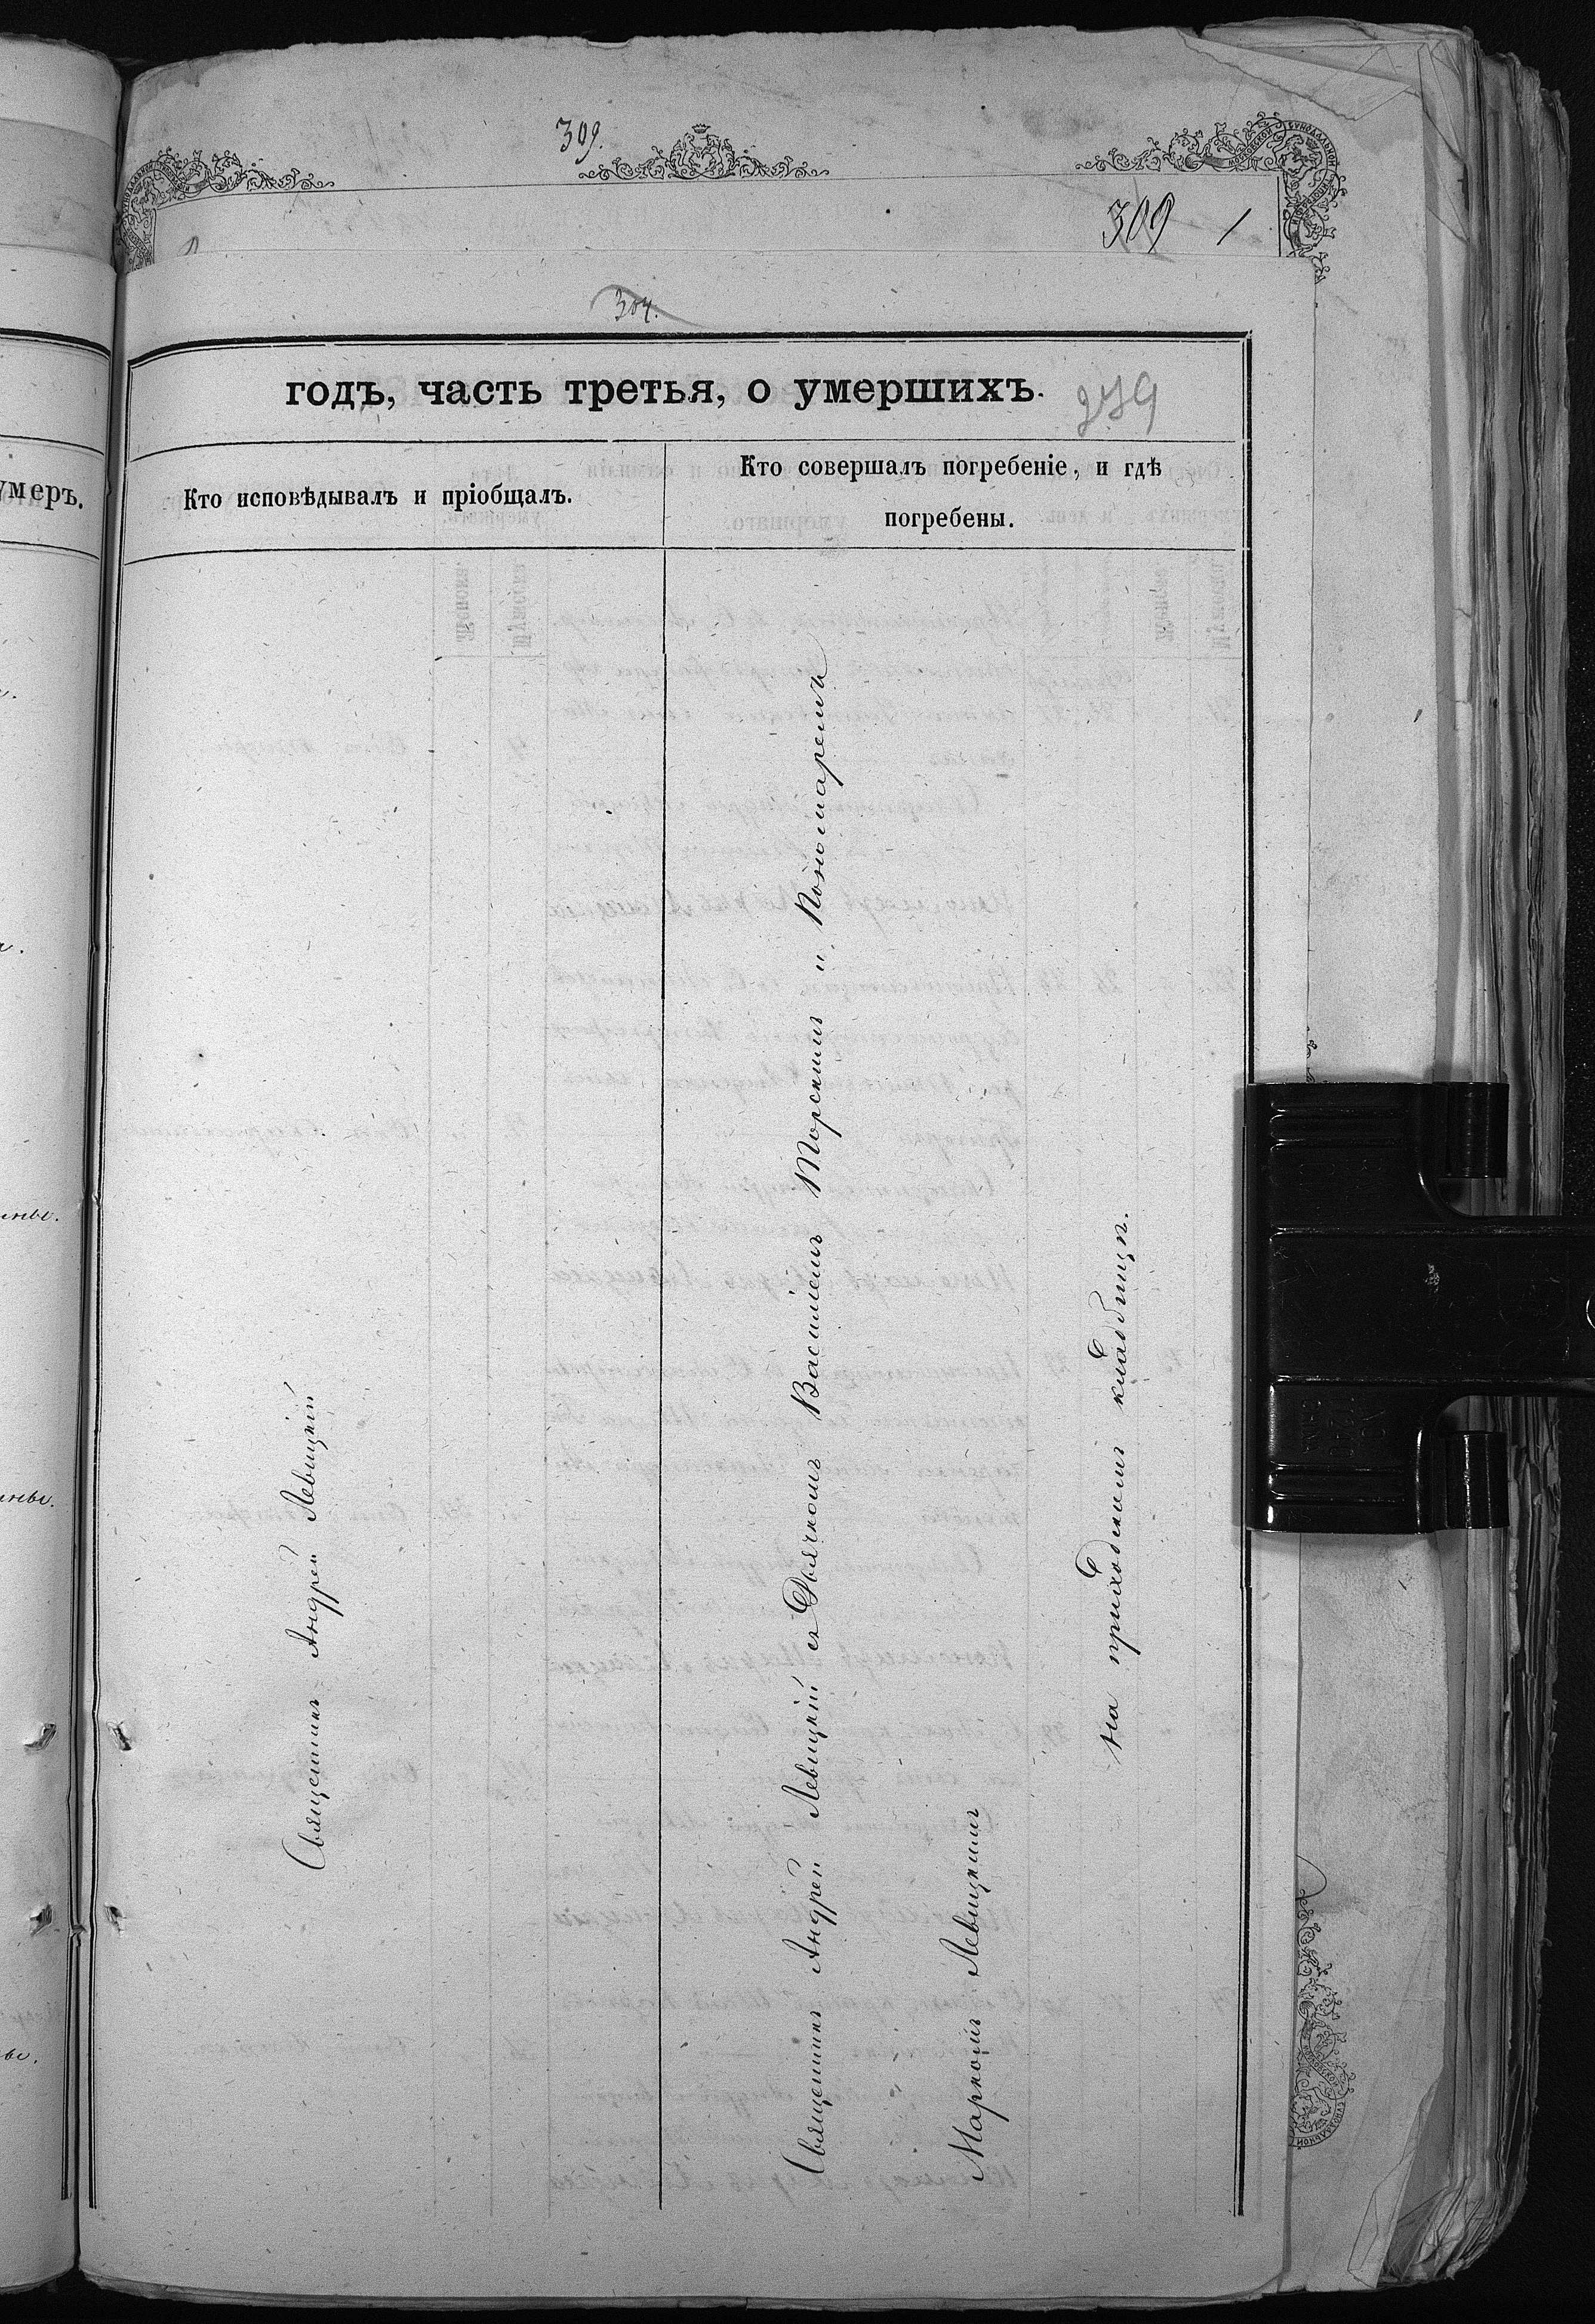 309.
309
304.
годъ, часть третья, о умершихъ.
279
умеръ.
Кто исповѣдывалъ и пріобщалъ.
Кто совершалъ погребеніе, и гдѣ
погребены.
Священникъ Андрей Левицкій
Священникъ Андрей Левицкій съ Дьячкомъ Василіемъ Торскимъ и Пономаремъ
Маркомъ Левицкимъ
на приходскомъ кладбищѣ.